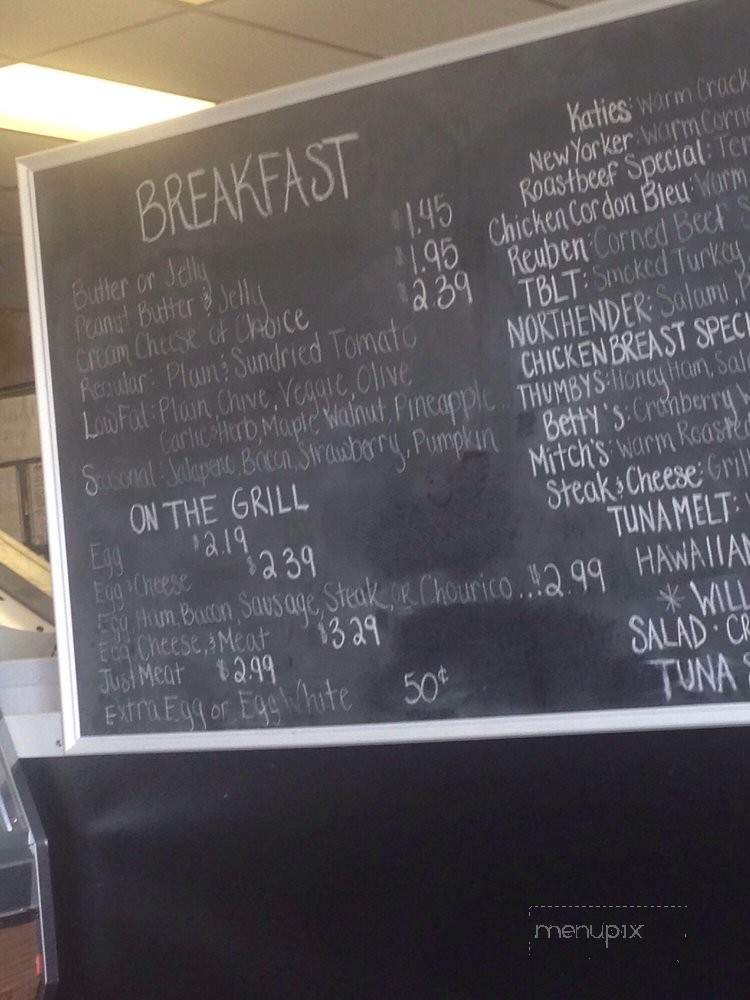 BREAKFAST
Butter or Jelly $1.45
Peanut Butter & Jelly $1.95
Cream Cheese of Choice $2.39
Regular: Plain & Sundried Tomato
LowFat: Plain, Chive, Veggie, Olive
Garlic & Herb, Maple Walnut, Pineapple
Seasonal: Jalapeno, Bacon, Strawberry, Pumpkin
ON THE GRILL
Egg $2.19
Egg & Cheese $2.39
Egg, Ham, Bacon, Sausage, Steak, or Chourico...$2.99
Egg, Cheese, & Meat $3.29
Just Meat $2.99
Extra Egg or Egg White 50¢
Katies: Warm Crack
New Yorker: Warm Corn
Roastbeef Special: Ter
Chicken Cordon Bleu: Warm
Reuben: Corned Beef S
TBLT: Smoked Turkey,
NORTHENDER: Salami,
CHICKEN BREAST SPECI
THUMBYS: Honey Ham, Sal
Betty's: Cranberry
Mitch's: Warm Roaste
Steak & Cheese: Gril
TUNA MELT:
HAWAIIAN
* WILL
SALAD · CR
TUNA S
menupix